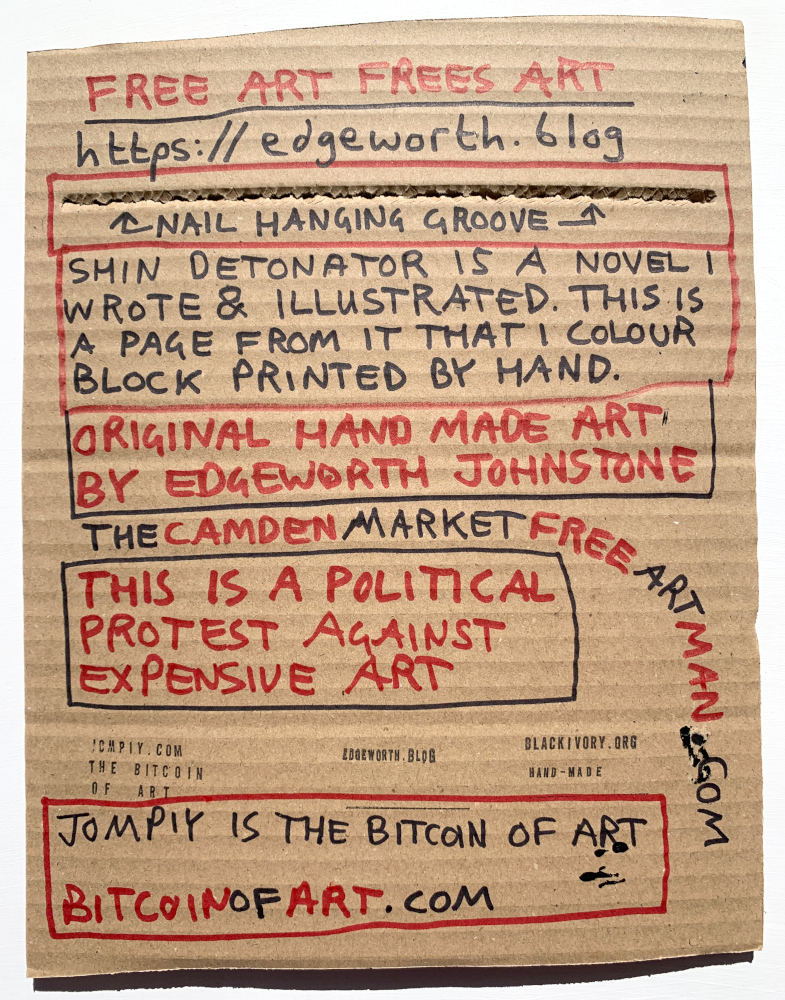 FREE ART FREES ART
https://edgeworth.blog
NAIL HANGING GROOVE
SHIN DETONATOR IS A NOVEL I
WROTE & ILLUSTRATED. THIS IS
A PAGE FROM IT THAT I COLOUR
BLOCK PRINTED BY HAND.
ORIGINAL HAND MADE ART
BY EDGEWORTH JOHNSTONE
THE CAMDEN MARKET FREE ART MAN .COM
THIS IS A POLITICAL
PROTEST AGAINST
EXPENSIVE ART
JOMPIY.COM
THE BITCOIN
OF ART
EDGEWORTH.BLOG
BLACKIVORY.ORG
HAND-MADE
JOMPIY IS THE BITCOIN OF ART
BITCOINOFART.COM